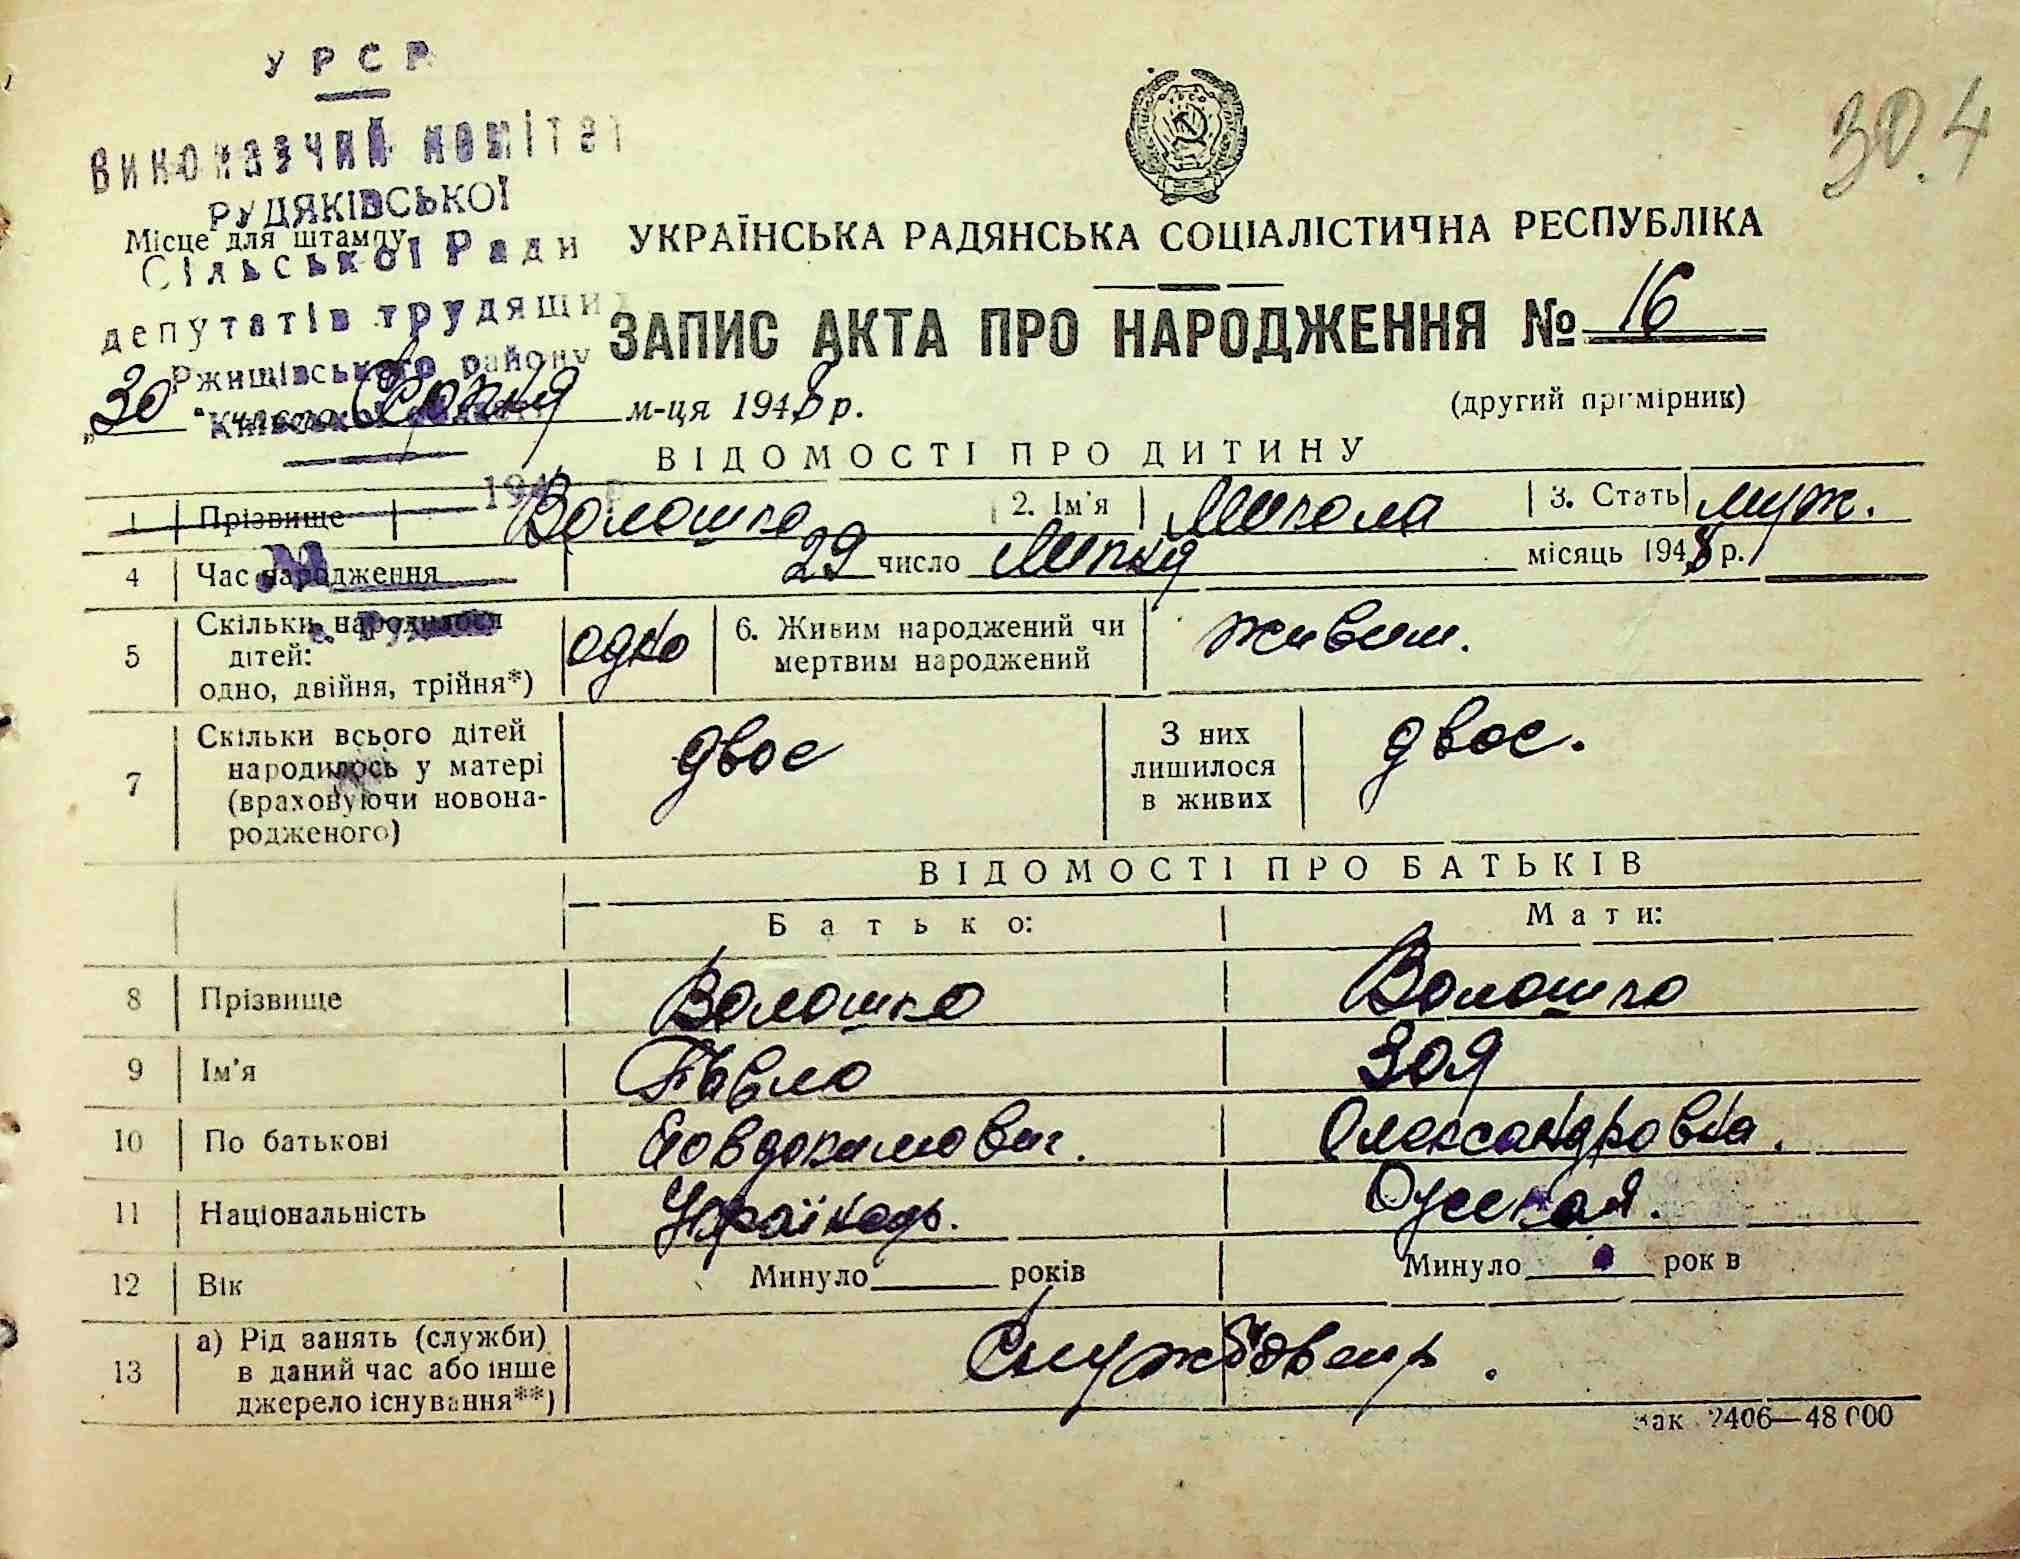 УРСР
Виконавчий комітет
РУДЯКІВСЬКОЇ
Місце для штампу
Сільської Ради
депутатів трудящих
Ржищівського району
Київської
304
УКРАЇНСЬКА РАДЯНСЬКА СОЦІАЛІСТИЧНА РЕСПУБЛІКА
ЗАПИС АКТА ПРО НАРОДЖЕННЯ № 16
„30" число Серпня м-ця 1948 р.
(другий примірник)
ВІДОМОСТІ ПРО ДИТИНУ
194
1 Прізвище Волошко 2. Ім'я Микола 3. Стать муж.
4 Час народження 29 число Липня місяць 1948 р.
5 Скільки народилося дітей: одно, двійня, трійня*) одно 6. Живим народжений чи мертвим народжений живим.
7 Скільки всього дітей народилось у матері (враховуючи новонародженого) двоє З них лишилося в живих двоє.
ВІДОМОСТІ ПРО БАТЬКІВ
Батько: Мати:
8 Прізвище Волошко Волошко
9 Ім'я Павло Зоя
10 По батькові Овдокимович. Олександровна.
11 Національність Українець. Руская.
12 Вік Минуло років Минуло рок в
13 а) Рід занять (служби) в даний час або інше джерело існування**) Службовець.
Зак 2406—48000